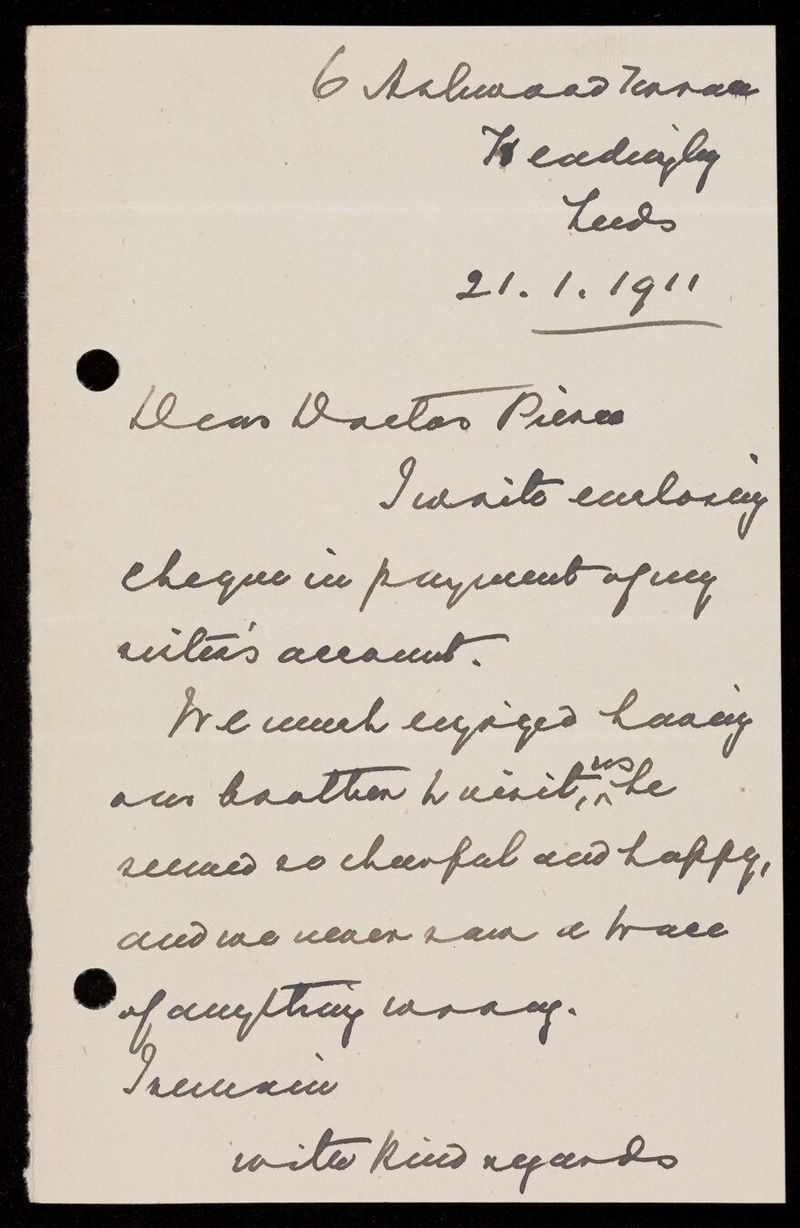 6 Ashwood Terrace
Headingley
Leeds
21. 1. 1911
Dear Doctor Pierce
I write enclosing
cheque in payment of my
sister's account.
We much enjoyed having
our brother to visit, us he
seemed so cheerful and happy,
and we never saw a trace
of anything wrong.
I remain
with kind regards